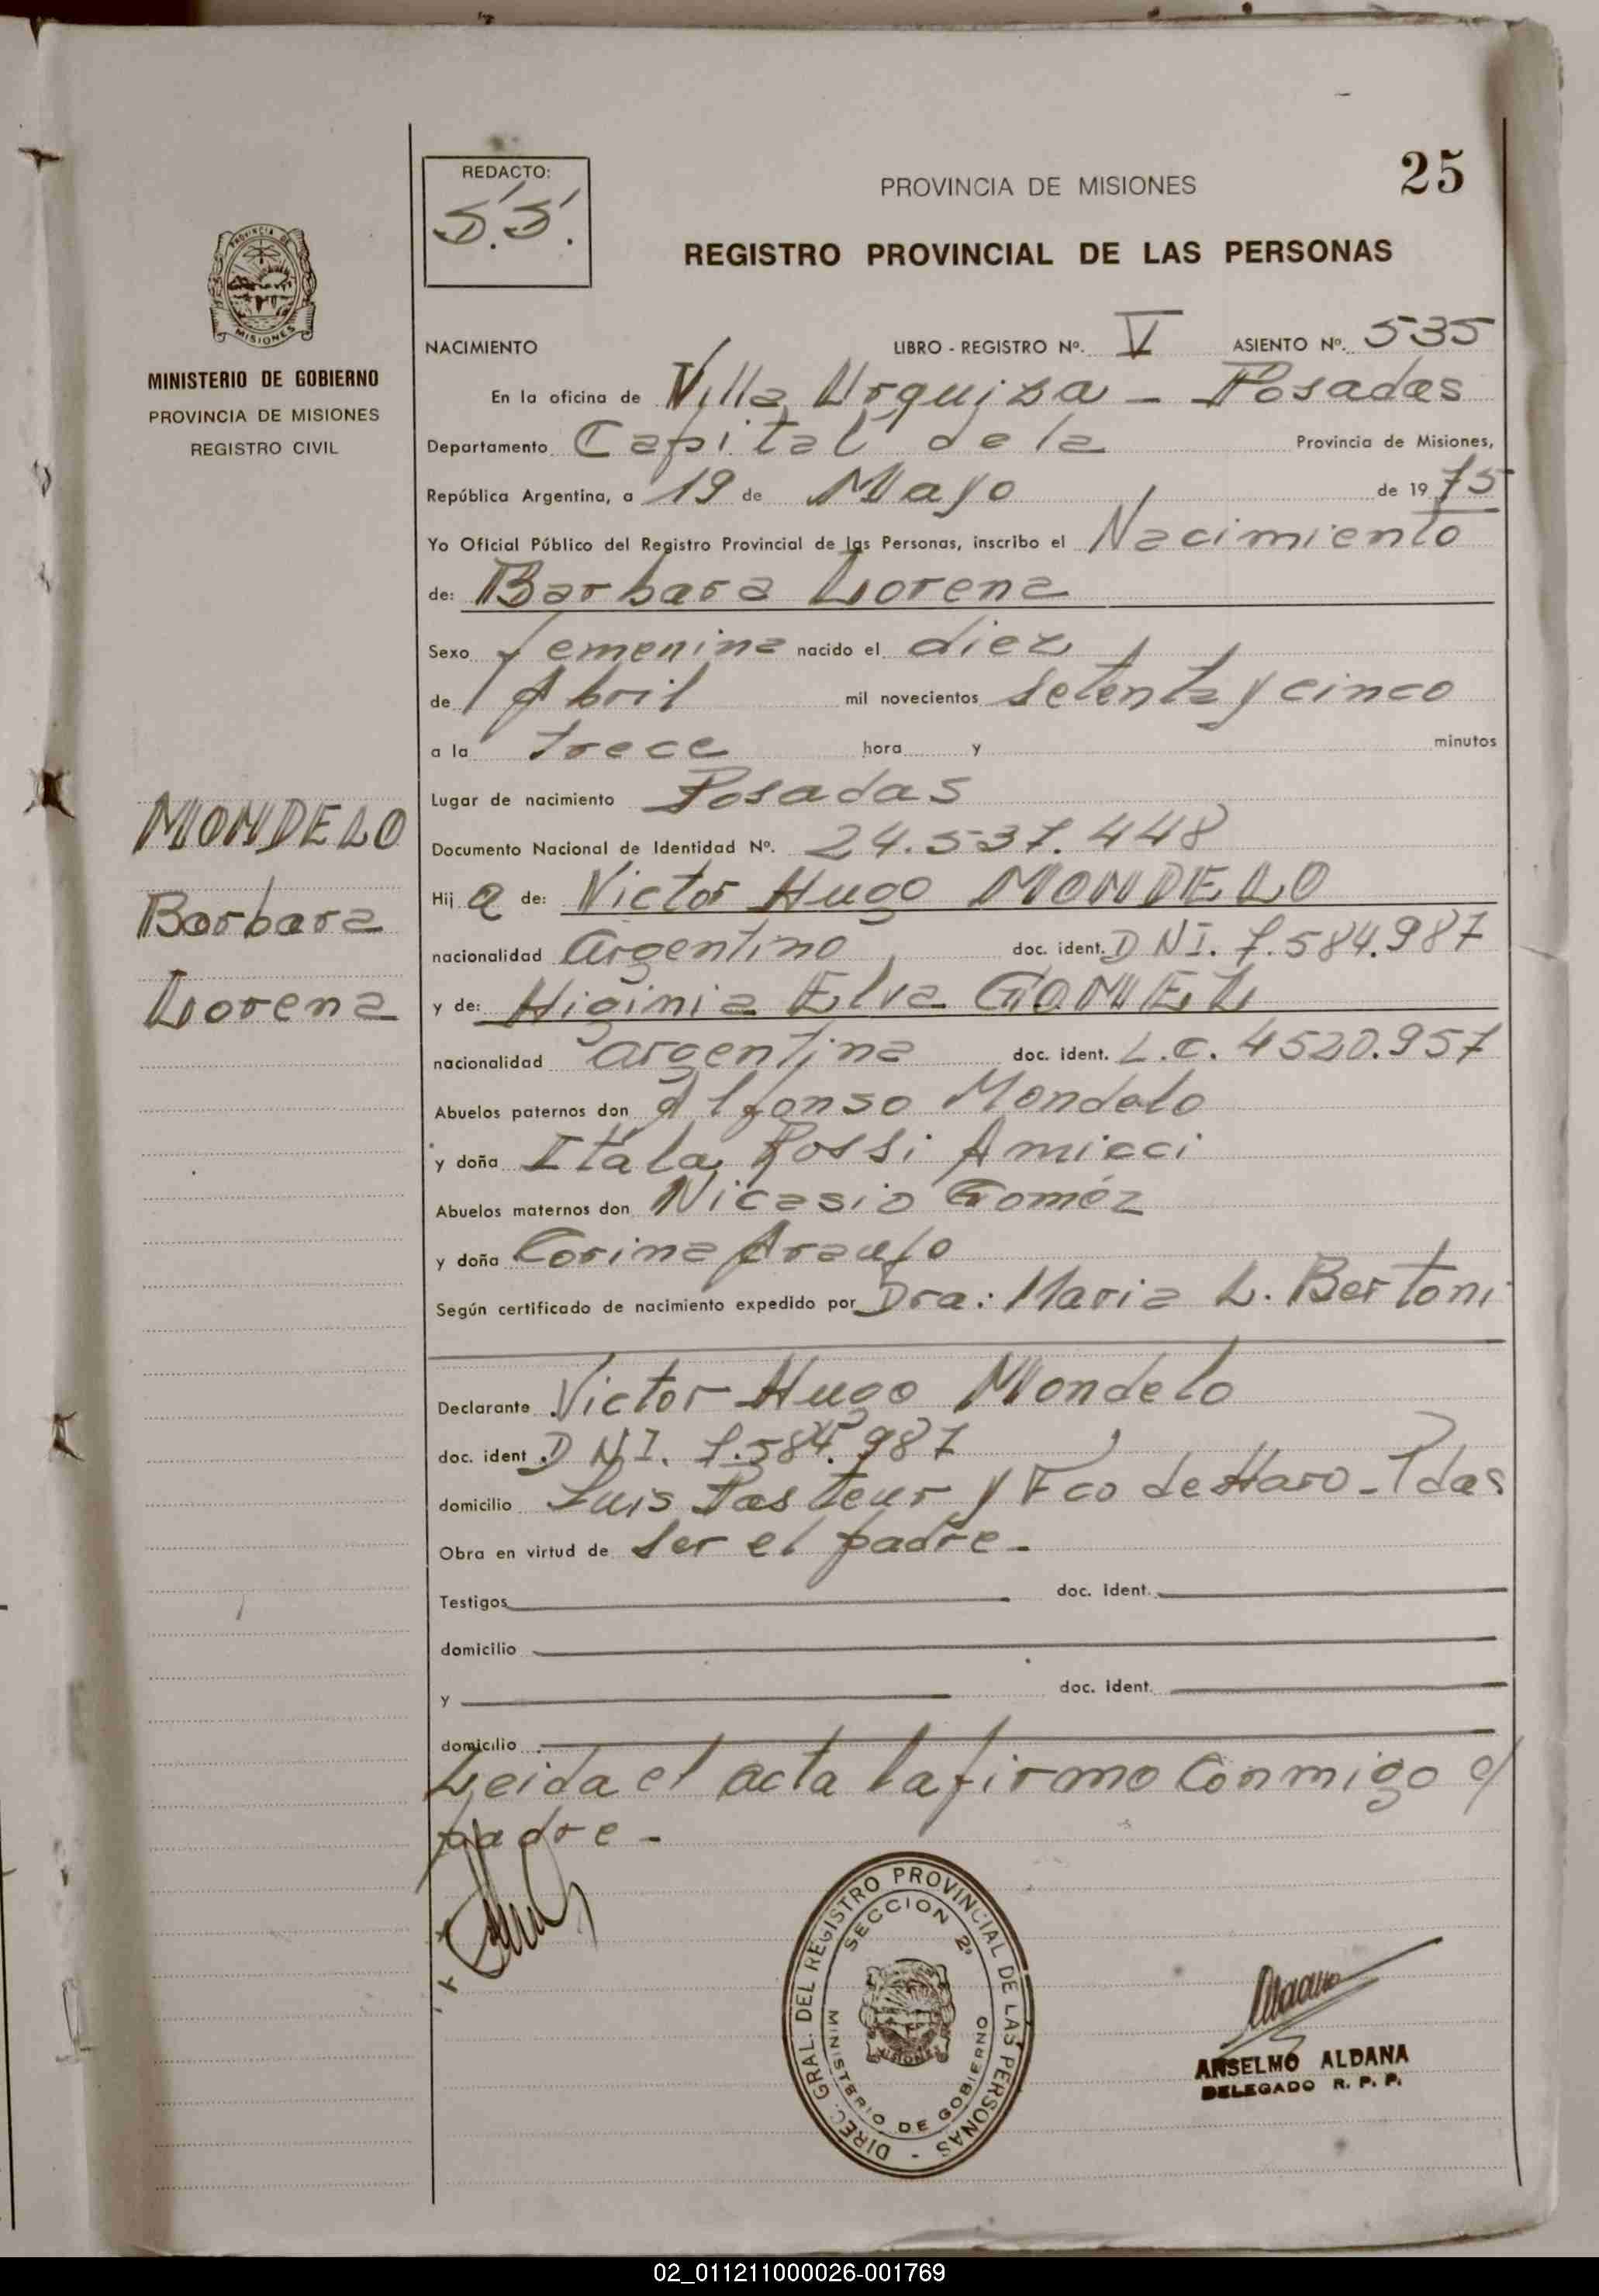 25
REDACTO:
S.S.
PROVINCIA DE MISIONES
REGISTRO PROVINCIAL DE LAS PERSONAS
PROVINCIA DE
MISIONES
MINISTERIO DE GOBIERNO
PROVINCIA DE MISIONES
REGISTRO CIVIL
NACIMIENTO LIBRO - REGISTRO Nº. V ASIENTO Nº. 535
En la oficina de Villa Urquiza - Posadas
Departamento Capital de la Provincia de Misiones,
República Argentina, a 19 de Mayo de 1975
Yo Oficial Público del Registro Provincial de las Personas, inscribo el Nacimiento
de: Barbara Lorena
Sexo femenina nacido el diez
de Abril mil novecientos setenta y cinco
a la trece hora y minutos
Lugar de nacimiento Posadas
Documento Nacional de Identidad Nº. 24.537.448
Hija de: Victor Hugo MONDELO
nacionalidad argentino doc. ident. DNI. 7.584.987
y de: Higinia Elva GOMEZ
nacionalidad argentina doc. ident. L.C. 4520.957
Abuelos paternos don Alfonso Mondelo
y doña Itala Rossi Amicci
Abuelos maternos don Nicasio Goméz
y doña Corina Araujo
Según certificado de nacimiento expedido por Dra: Maria L. Bertoni
MONDELO
Barbara
Lorena
Declarante Victor Hugo Mondelo
doc. ident. DNI. 7.584.987
domicilio Luis Pasteur y Fco de Haro - Pdas
Obra en virtud de ser el padre -
Testigos doc. Ident.
domicilio
y doc. Ident.
domicilio
Leida el acta la firmo conmigo el
padre -
DIREC. GRAL. DEL REGISTRO PROVINCIAL DE LAS PERSONAS -
SECCION 2ª
MINISTERIO DE GOBIERNO
MISIONES
ANSELMO ALDANA
DELEGADO R. P. P.
02_011211000026-001769